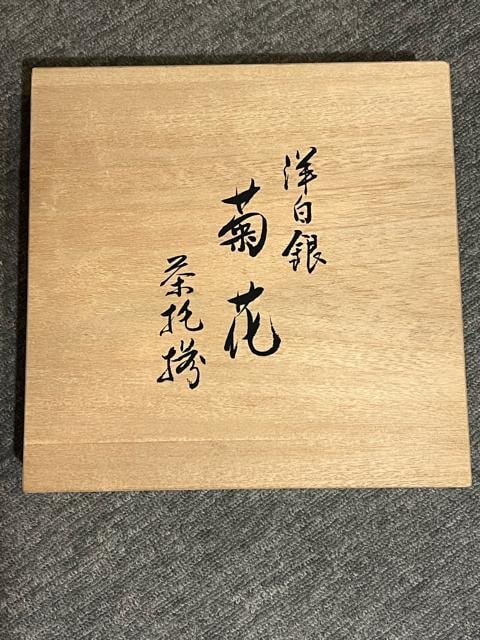 洋白銀
菊花
茶托揃